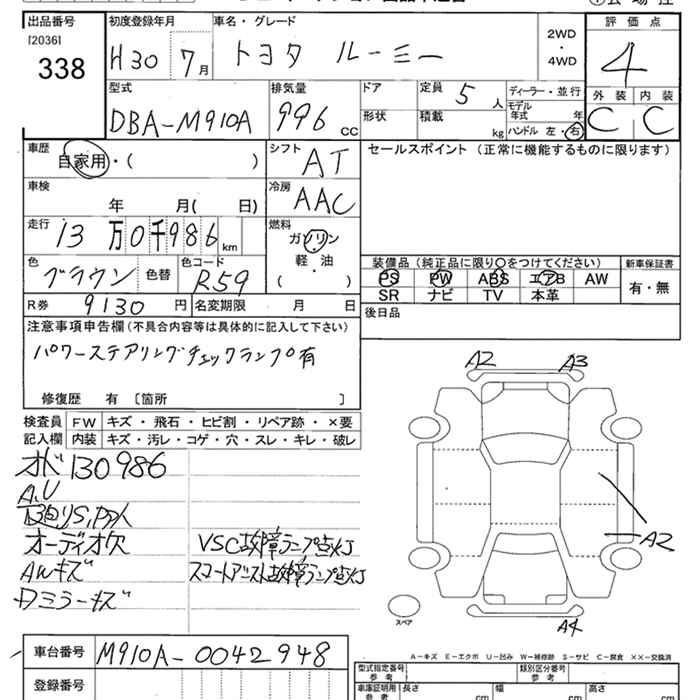 出品番号 初度登録年月 車名・グレード 評価点
[2036]
338
H30 7月 トヨタ ルーミー
2WD
・
4WD
4
型式 排気量 ドア 定員 5人 ディーラー・並行 外装 内装
DBA-M910A 996 CC 形状 積載 kg
モデル年式 年
ハンドル 左・右
C C
車歴 シフト セールスポイント (正常に機能するものに限ります)
自家用・( ) AT
車検 冷房
年 月( 日) AAC
走行 燃料
13万0千986km ガソリン
軽・油
( )
色 色コード
ブラウン 色替 R59
装備品 (純正品に限り○をつけてください) 新車保証書
PS PW ABS エアB AW 有・無
SR ナビ TV 本革
R券 9130円 名変期限 月 日
後日品
注意事項申告欄 (不具合内容等は具体的に記入して下さい)
パワーステアリングチェックランプ有
修復歴 有 〔箇所 〕
検査員 FW キズ・飛石・ヒビ割・リペア跡・×要
記入欄 内装 キズ・汚レ・コゲ・穴・スレ・キレ・破レ
A2 A3
オド130986
A,U
オーディオ欠 VSC故障ランプ点灯
AWキズ スマートアシスト故障ランプ点灯
ドミラーキズ
A2
スペア
A4
A-キズ E-エクボ U-凹み W-補修跡 S-サビ C-腐食 ××-交換済
車台番号 M910A-0042948
型式指定番号 参考 類別区分番号 参考
登録番号 車庫証明用 参考 長さ cm 幅 cm 高さ cm